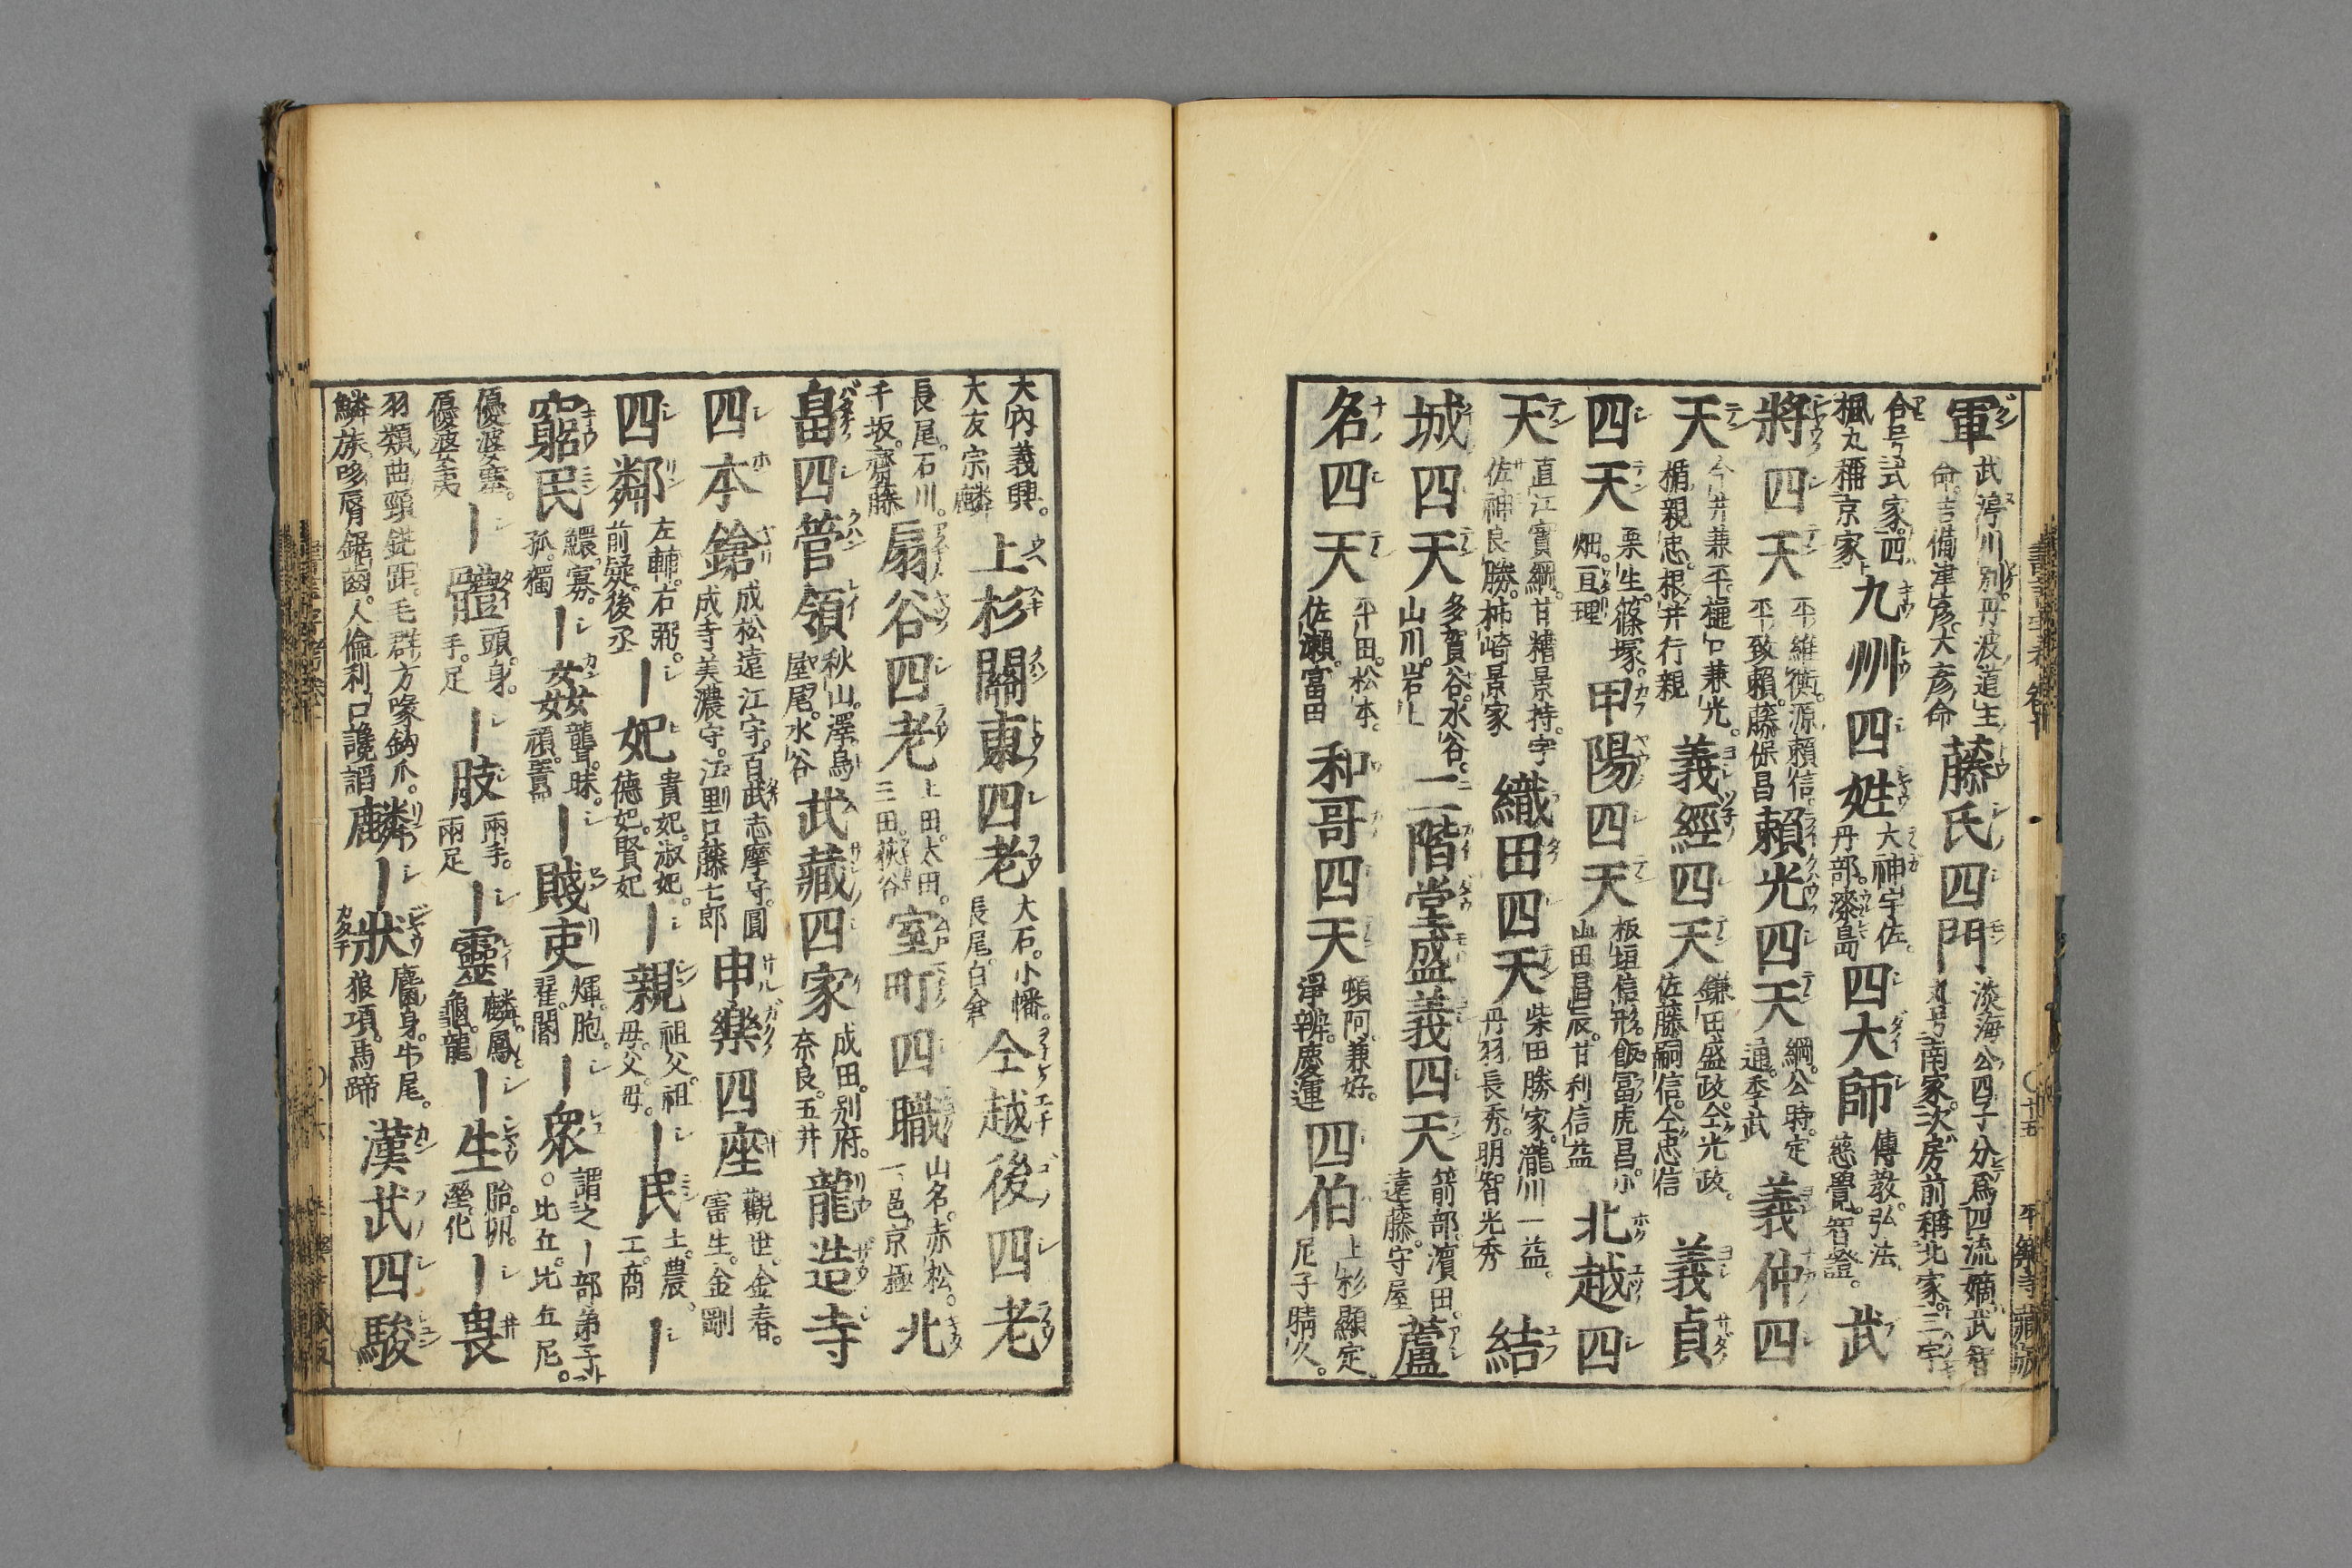 軍 武渟川別。丹波道主
命。吉備津彦。大彦命
藤氏四門 淡海公四子分爲四流嫡武智
丸号南家次房前稱北家。三宇
合号式家。四
楓丸稱京家
九州四姓 大神宇佐。
丹部。漆島
四大師 傳教。弘法
慈覺。智證。
武
將四天 平維衡。源頼信。
平致頼。藤保昌
頼光四天 綱。公時。定
通。季武
義仲四
天 今井兼平。樋口兼光。
楯親忠。根井行親
義經四天 鎌田盛政。仝光政。
佐藤嗣信。仝忠信
義貞
四天 栗生。篠塚。
畑。亘理
甲陽四天 板垣信形。飯冨虎昌。小
山田昌辰。甘利信益
北越四
天 直江實綱。甘糟景持。宇
佐神良勝。柿崎景家
織田四天 柴田勝家。瀧川一益。
丹羽長秀。明智光秀
結
城四天 多賀谷。水谷。
山川。岩上
二階堂盛義四天 箭部。濱田。
遠藤。守屋
蘆
名四天 平田。松本。
佐瀬。富田
和哥四天 頓阿。兼好。
淨辨。慶運
四伯 上杉顯定。
尼子晴久。
大内義興。
大友宗麟
上杉關東四老 大石。小幡。
長尾。白倉
仝越後四老
長尾。石川。
千坂。齋藤
扇谷四老 上田。太田。
三田。荻谷
室町四職 山名。赤松。
一色。京極
北
畠四管領 秋山。澤。鳥
屋尾。水谷
武藏四家 成田。別府。
奈良。玉井
龍造寺
四本鎗 成松遠江守。百武志摩守。圓
成寺美濃守。江里口藤七郎
申樂四座 觀世。金春。
寳生。金剛
四鄰 左輔。右弼。
前疑。後丞
｜妃 貴妃。淑妃。
德妃。賢妃
｜親 祖父。祖
母。父。母。
｜民 士。農。
工。商
｜
窮民 鰥。寡。
孤。獨
｜姦 聾。昧。
頑。嚚
｜賤吏 煇。胞。
翟。閽
｜衆 謂之｜部弟子
。比丘。比丘尼。
優婆塞。
優婆夷
｜體 頭。身。
手。足
｜肢 兩手。
兩足
｜靈 麟。鳳。
龜。龍
｜生 胎。卵。
溼。化
｜畏
羽類曲頸銳距。毛群方喙鈎爪。
鱗族哆脣鋸齒。人倫利口讒謟
麟｜狀 麕身。牛尾。
狼項。馬蹄
漢武四駿